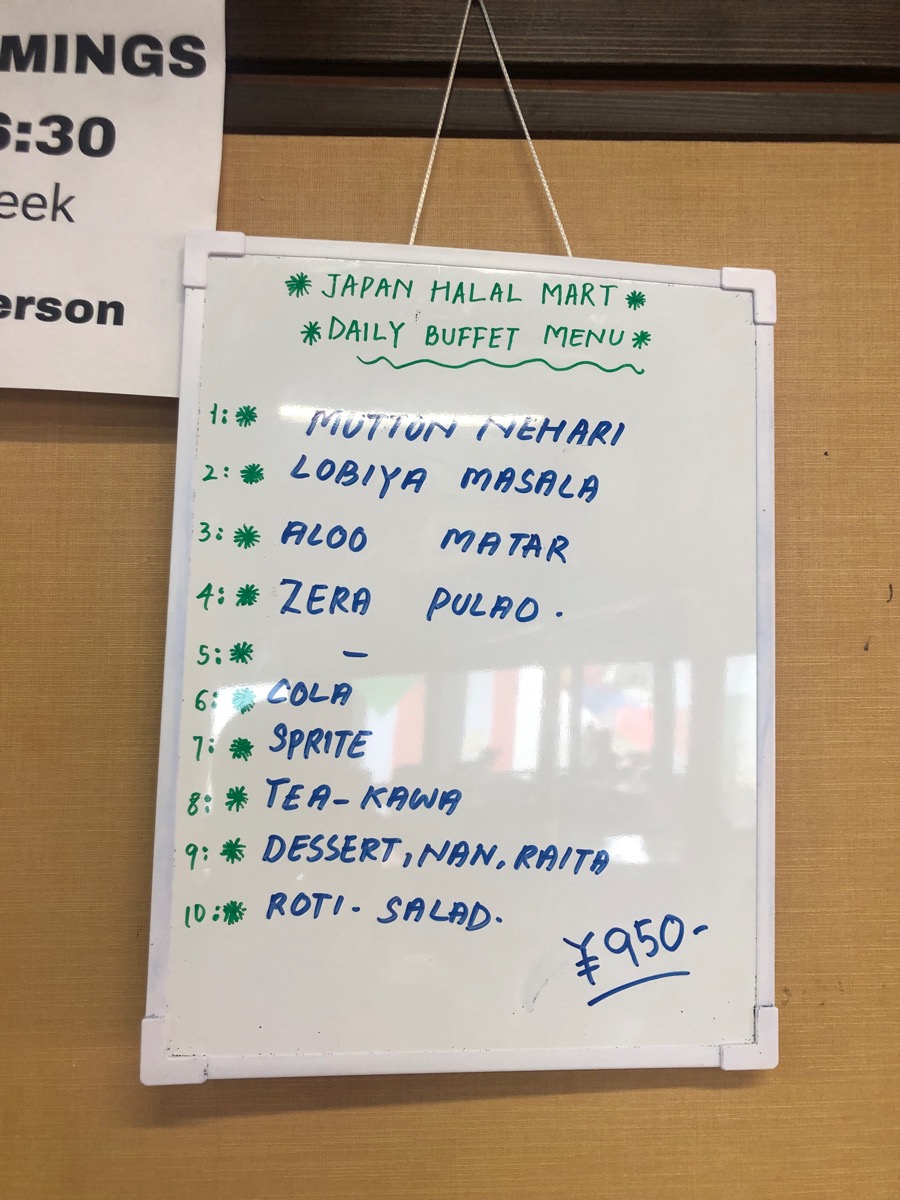 MINGS
6:30
eek
erson
* JAPAN HALAL MART *
* DAILY BUFFET MENU *
1: * MUTTON NEHARI
2: * LOBIYA MASALA
3: * ALOO MATAR
4: * ZERA PULAO.
5: * -
6: * COLA
7: * SPRITE
8: * TEA-KAWA
9: * DESSERT, NAN, RAITA
10: * ROTI- SALAD.
¥950-